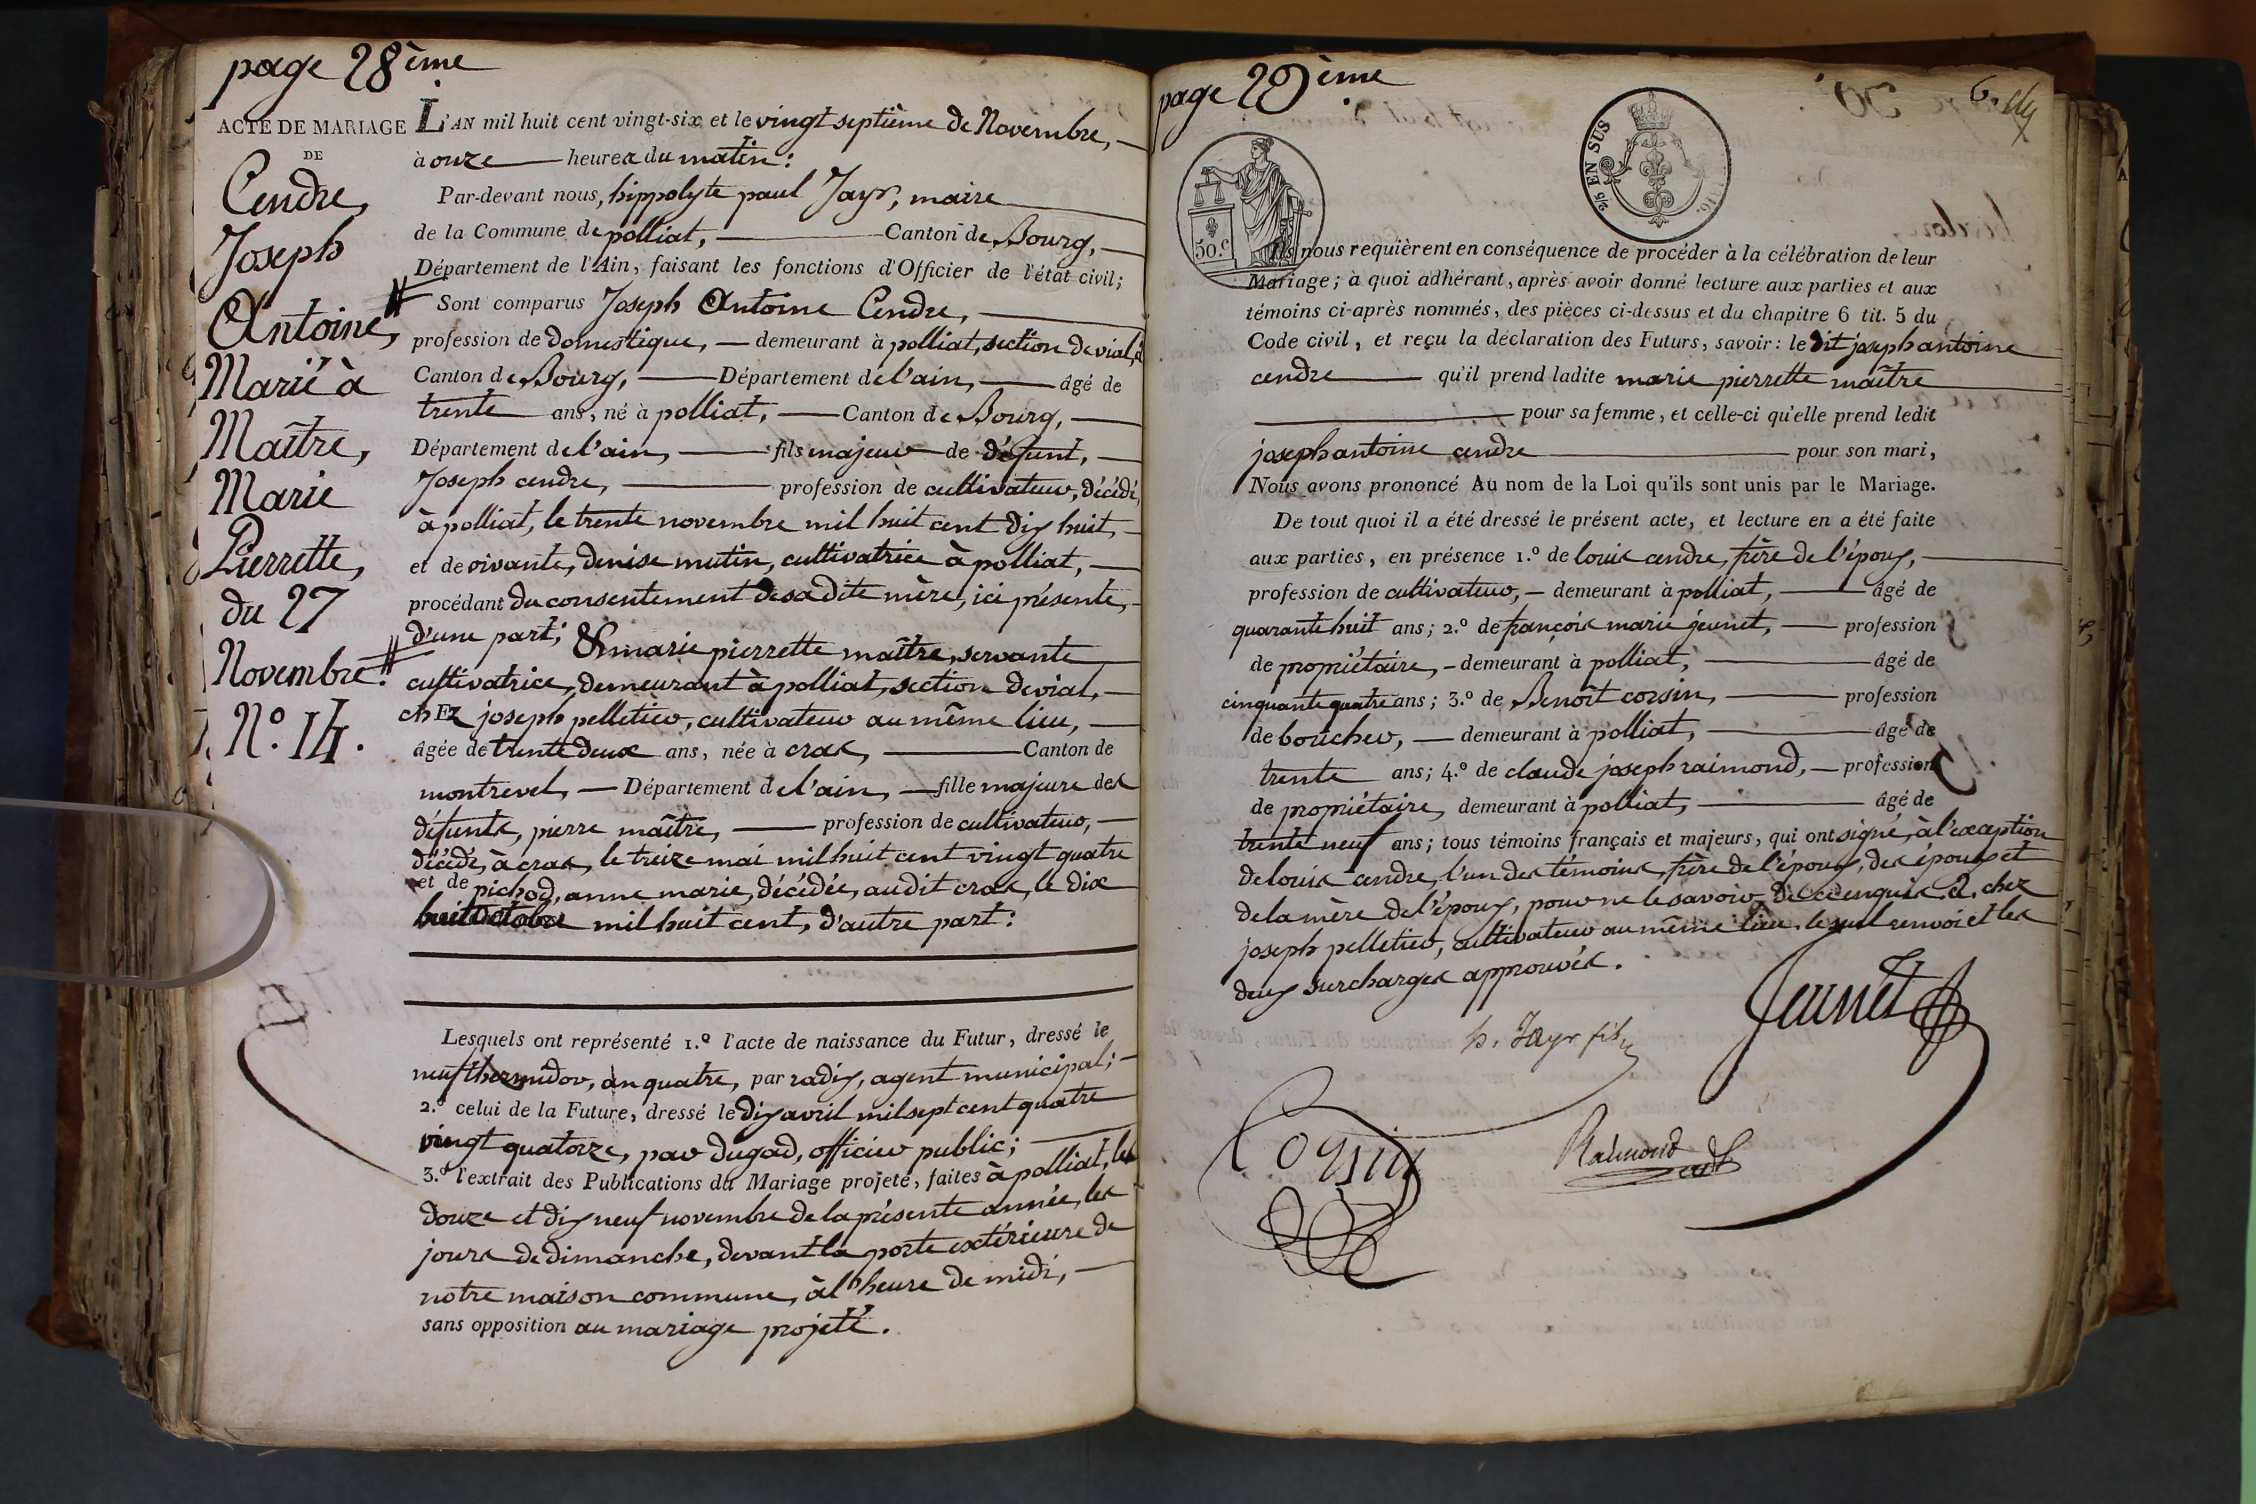 page 28ème
ACTE DE MARIAGE
DE
Cendre,
Joseph
Antoine,
Marié à
Maître,
Marie
Pierrette,
du 27
Novembre.
N.º 14.
L'AN mil huit cent vingt-six et le vingt septième de Novembre,
à onze heures du matin:
Par-devant nous, hippolyte paul Jayr, maire
de la Commune de polliat, Canton de Bourg,
Département de l'Ain, faisant les fonctions d'Officier de l'état civil;
Sont comparus Joseph Antoine Cendre,
profession de domestique, demeurant à polliat, section de vial, a
Canton de Bourg, Département de l'ain, âgé de
trente ans, né à polliat, Canton de Bourg,
Département de l'ain, fils majeur de défunt,
Joseph cendre, profession de cultivateur, décédé,
à polliat, le trente novembre mil huit cent dix huit,
et de vivante, denise mutin, cultivatrice à polliat,
procédant du consentement de sadite mère, ici présente,
d'une part; & marie pierrette maître, servante
cultivatrice, demeurant à polliat, section de vial,
chEz joseph pelletier, cultivateur au même lieu,
âgée de trente deux ans, née à cras, Canton de
montrevel, Département de l'ain, fille majeure des
défunts, pierre maître, profession de cultivateur,
décédé, à cras, le treize mai mil huit cent vingt quatre
et de pichod, anne marie, décédée, audit cras, le dix
huit octobre mil huit cent, d'autre part:
Lesquels ont représenté 1.º l'acte de naissance du Futur, dressé le
neuf thermidor, an quatre, par radix, agent municipal;
2.º celui de la Future, dressé le dix avril mil sept cent quatre
vingt quatorze, par dugad, officier public;
3.º l'extrait des Publications du Mariage projeté, faites à polliat, les
douze et dix neuf novembre de la présente année, les
jours de dimanche, devant la porte extérieure de
notre maison commune, à l'heure de midi,
sans opposition au mariage projeté.
page 29ème
50.c
2/5 EN SUS
Ils nous requièrent en conséquence de procéder à la célébration de leur
Mariage; à quoi adhérant, après avoir donné lecture aux parties et aux
témoins ci-après nommés, des pièces ci-dessus et du chapitre 6 tit. 5 du
Code civil, et reçu la déclaration des Futurs, savoir: le dit joseph antoine
cendre qu'il prend ladite marie pierrette maître
pour sa femme, et celle-ci qu'elle prend ledit
joseph antoine cendre pour son mari,
Nous avons prononcé Au nom de la Loi qu'ils sont unis par le Mariage.
De tout quoi il a été dressé le présent acte, et lecture en a été faite
aux parties, en présence 1.º de louis cendre, frère de l'époux,
profession de cultivateur, demeurant à polliat, âgé de
quarante huit ans; 2.º de françois marie jeunet, profession
de propriétaire, demeurant à polliat, âgé de
cinquante quatre ans; 3.º de Benoît corsin, profession
de boucher, demeurant à polliat, âgé de
trente ans; 4.º de claude joseph raimond, profession
de propriétaire, demeurant à polliat, âgé de
trente neuf ans; tous témoins français et majeurs, qui ont signé, à l'exception
de louis cendre, l'un des témoins, frère de l'époux, des époux et
de la mère de l'époux, pour ne le savoir de ce enquis. a. chez
joseph pelletier, cultivateur au même lieu. le seul renvoi et les
deux surcharges approuvés.
Jeunet
h. Jayr fils
Corsin
Raimond